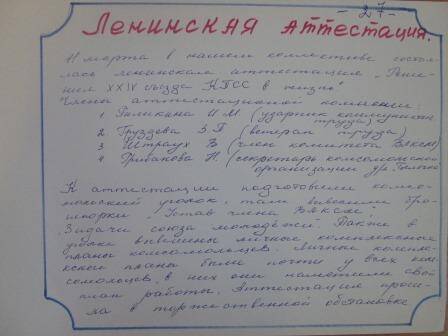 - 27 -
Ленинская аттестация.
марта в нашем коллективе состоя-
лась ленинская аттестация „Реше-
ния XXIV съезда КПСС в жизнь"
Члены аттестационной комиссии:
1 И М (ударник коммунистич
труда)
2 Груздева З П (ветеран труда)
3 Штраух В (член комитета ВЛКСМ)
4 Грибанова Н. (секретарь комсомольской
организации
К аттестации подготовили комсо-
мольский уголок, там вывесили бро-
шюрки „Устав члена ВЛКСМ",
Задачи союза молодежи. Также в
уголке вывешены личные комплексные
планы комсомольцев. Личные комплек-
сные планы были почти у всех ком-
сомольцев, в них они наметили свой
план работы. Аттестация прош-
ла в торжественной обстановке